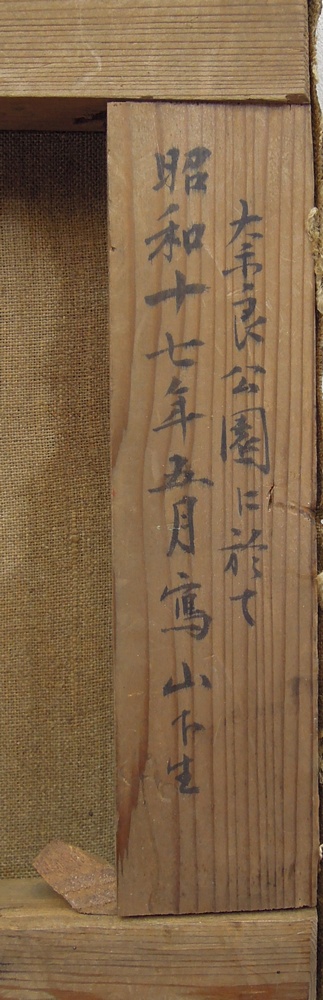 奈良公園に於て
昭和十七年五月寫山下生